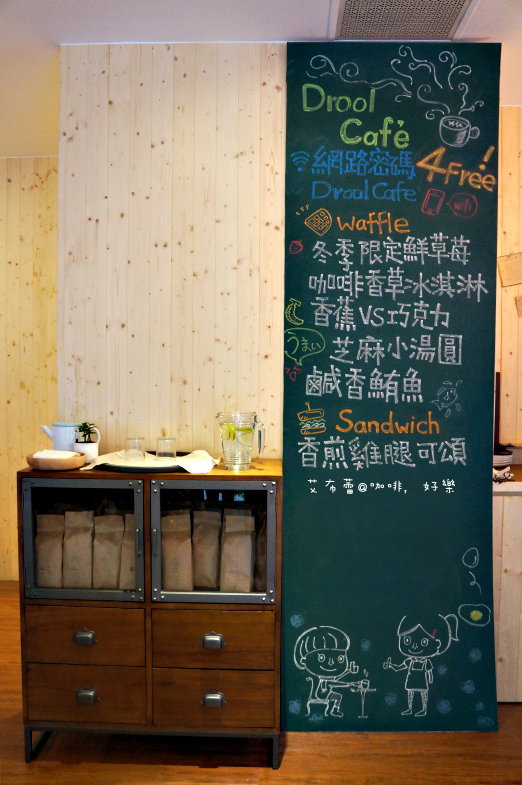 Drool
Café
網路密碼
4Free!
Drool Cafe
wifi
Waffle
冬季限定鮮草莓
咖啡香草冰淇淋
香蕉VS巧克力
うまい
芝麻小湯圓
鹹香鮪魚
Sandwich
香煎雞腿可頌
艾布蕾@咖啡, 好樂